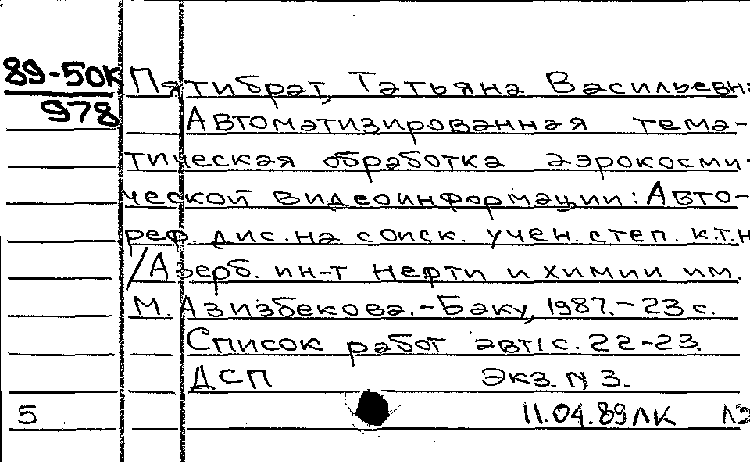 89-50К Пятибрат, Татьяна Васильевна
978 Автоматизированная тема-
тическая обработка аэрокосми-
ческой видеоинформации: Авто-
реф. дис. на соиск. учен. степ. к.т.н
/Азерб. ин-т нефти и химии им.
М. Азизбекова.-Баку, 1987.-23 с.
Список работ авт: с. 22-23.
ДСП Экз. N 3.
5 11.04.89 ЛК